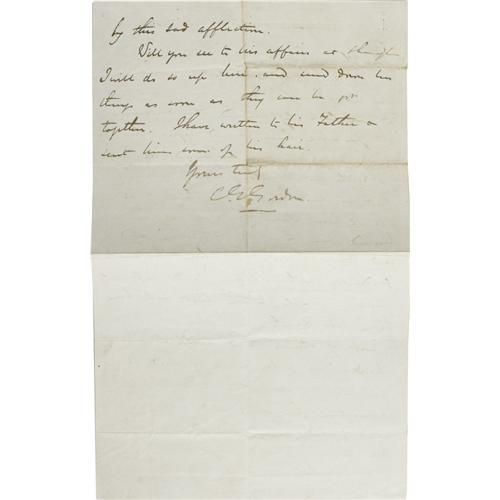 by this sad affliction.
Will you see to his affairs at
I will do so up here, and send down his
things as soon as they can be got
together. I have written to his Father &
sent him some of his hair.
Yours truly
C. G. Gordon